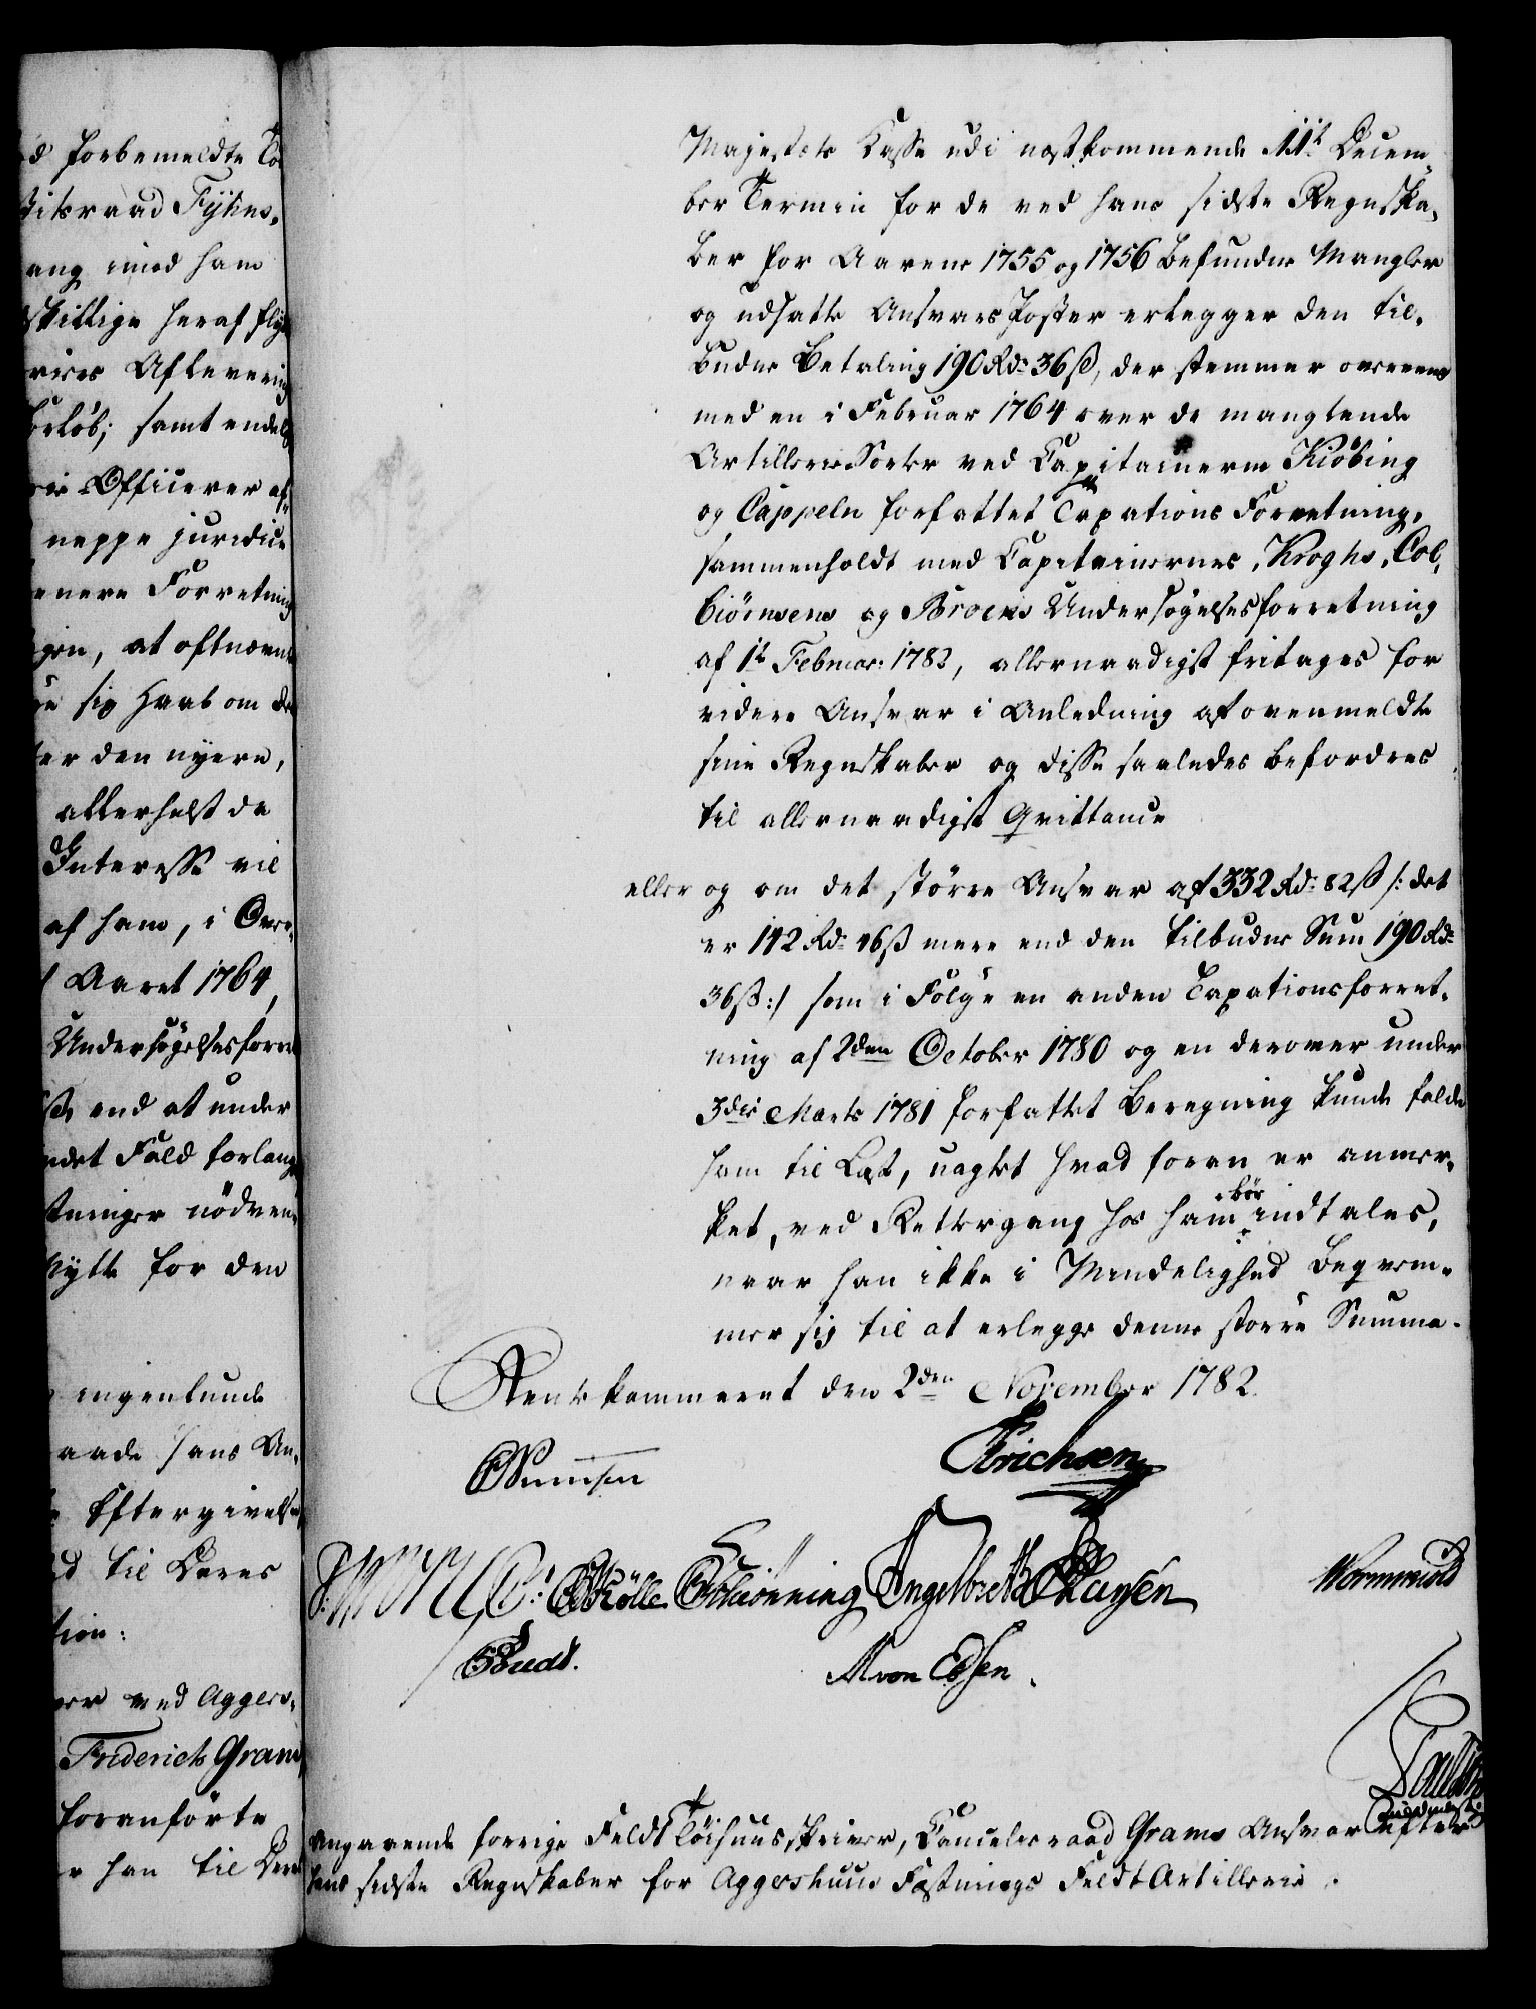 d forbemeldte Co
Fyhns,
ang imod ham
skillige heraf fly
Aflevering
forløb; samt endel
Officerer af
neppe juridice
enere Forretning
gen, at oftnævn
e sig Haab om de
ter den nyere,
allerhelst da
Interesse vil
af ham, i Over
Aaret 1764,
Undersøgelsesforre
end at under
ndet Fald forlang
stninger nødven,
nytte for den
ingenlunde
aade hans An,
Eftergivelse
d til Deres
tion:
ved Aggers,
Friderich Gram
foranførte
r han til Dere
Majestæts Casse udi næstkommende 11te Decem,
ber Termin for de ved hans sidste Regnska,
ber for Aarene 1755 og 1756 befundne Mangler
og udsatte Ansvars Poster erlegger den til,
budne Betaling 190 Rd. 36 ß, der stemmer overeens
med en i Februar 1764 over de manglende
Artillerie Sorter ved Capitainerne Kiøbing
og Cappeln forfattet Taxations Forretning,
sammenholdt med Capitainernes, Kroghs, Col,
biørnsens og Broens Undersøgelsesforretning
af 1te Februar: 1782, allernaadigst fritages for
videre Ansvar i Anledning af ovenmeldte
sine Regnskaber og disse saaledes befordres
til allernaadigst Qvittance
eller og om det større Ansvar af 332 Rd. 82 ß /: det
er 142 Rd. 46 ß mere end den tilbudne Sum 190 Rd.
36 ß :/ som i Følge en anden Taxationsforret,
ning af 2den October 1780 og en derover under
3die Marts 1781 forfattet Beregning kunde falde
ham til Last, uagtet hvad foran er anmer,
ket, ved Rettergang hos ham bør indtales,
naar han ikke i Mindelighed beqvem,
mer sig til at erlegge denne større Summa.
Rentekammeret den 2den November 1782.
Erichsen
Müller Schiönning Engelbreth Hansen Wormskiold
Budt. M von Essen.
angaaende forrige Feldt Tøihuusskriver, Cancelieraad Grams Ansvar efter
hans sidste Regnskaber for Aggershuus Fæstnings Feldt Artillerie.